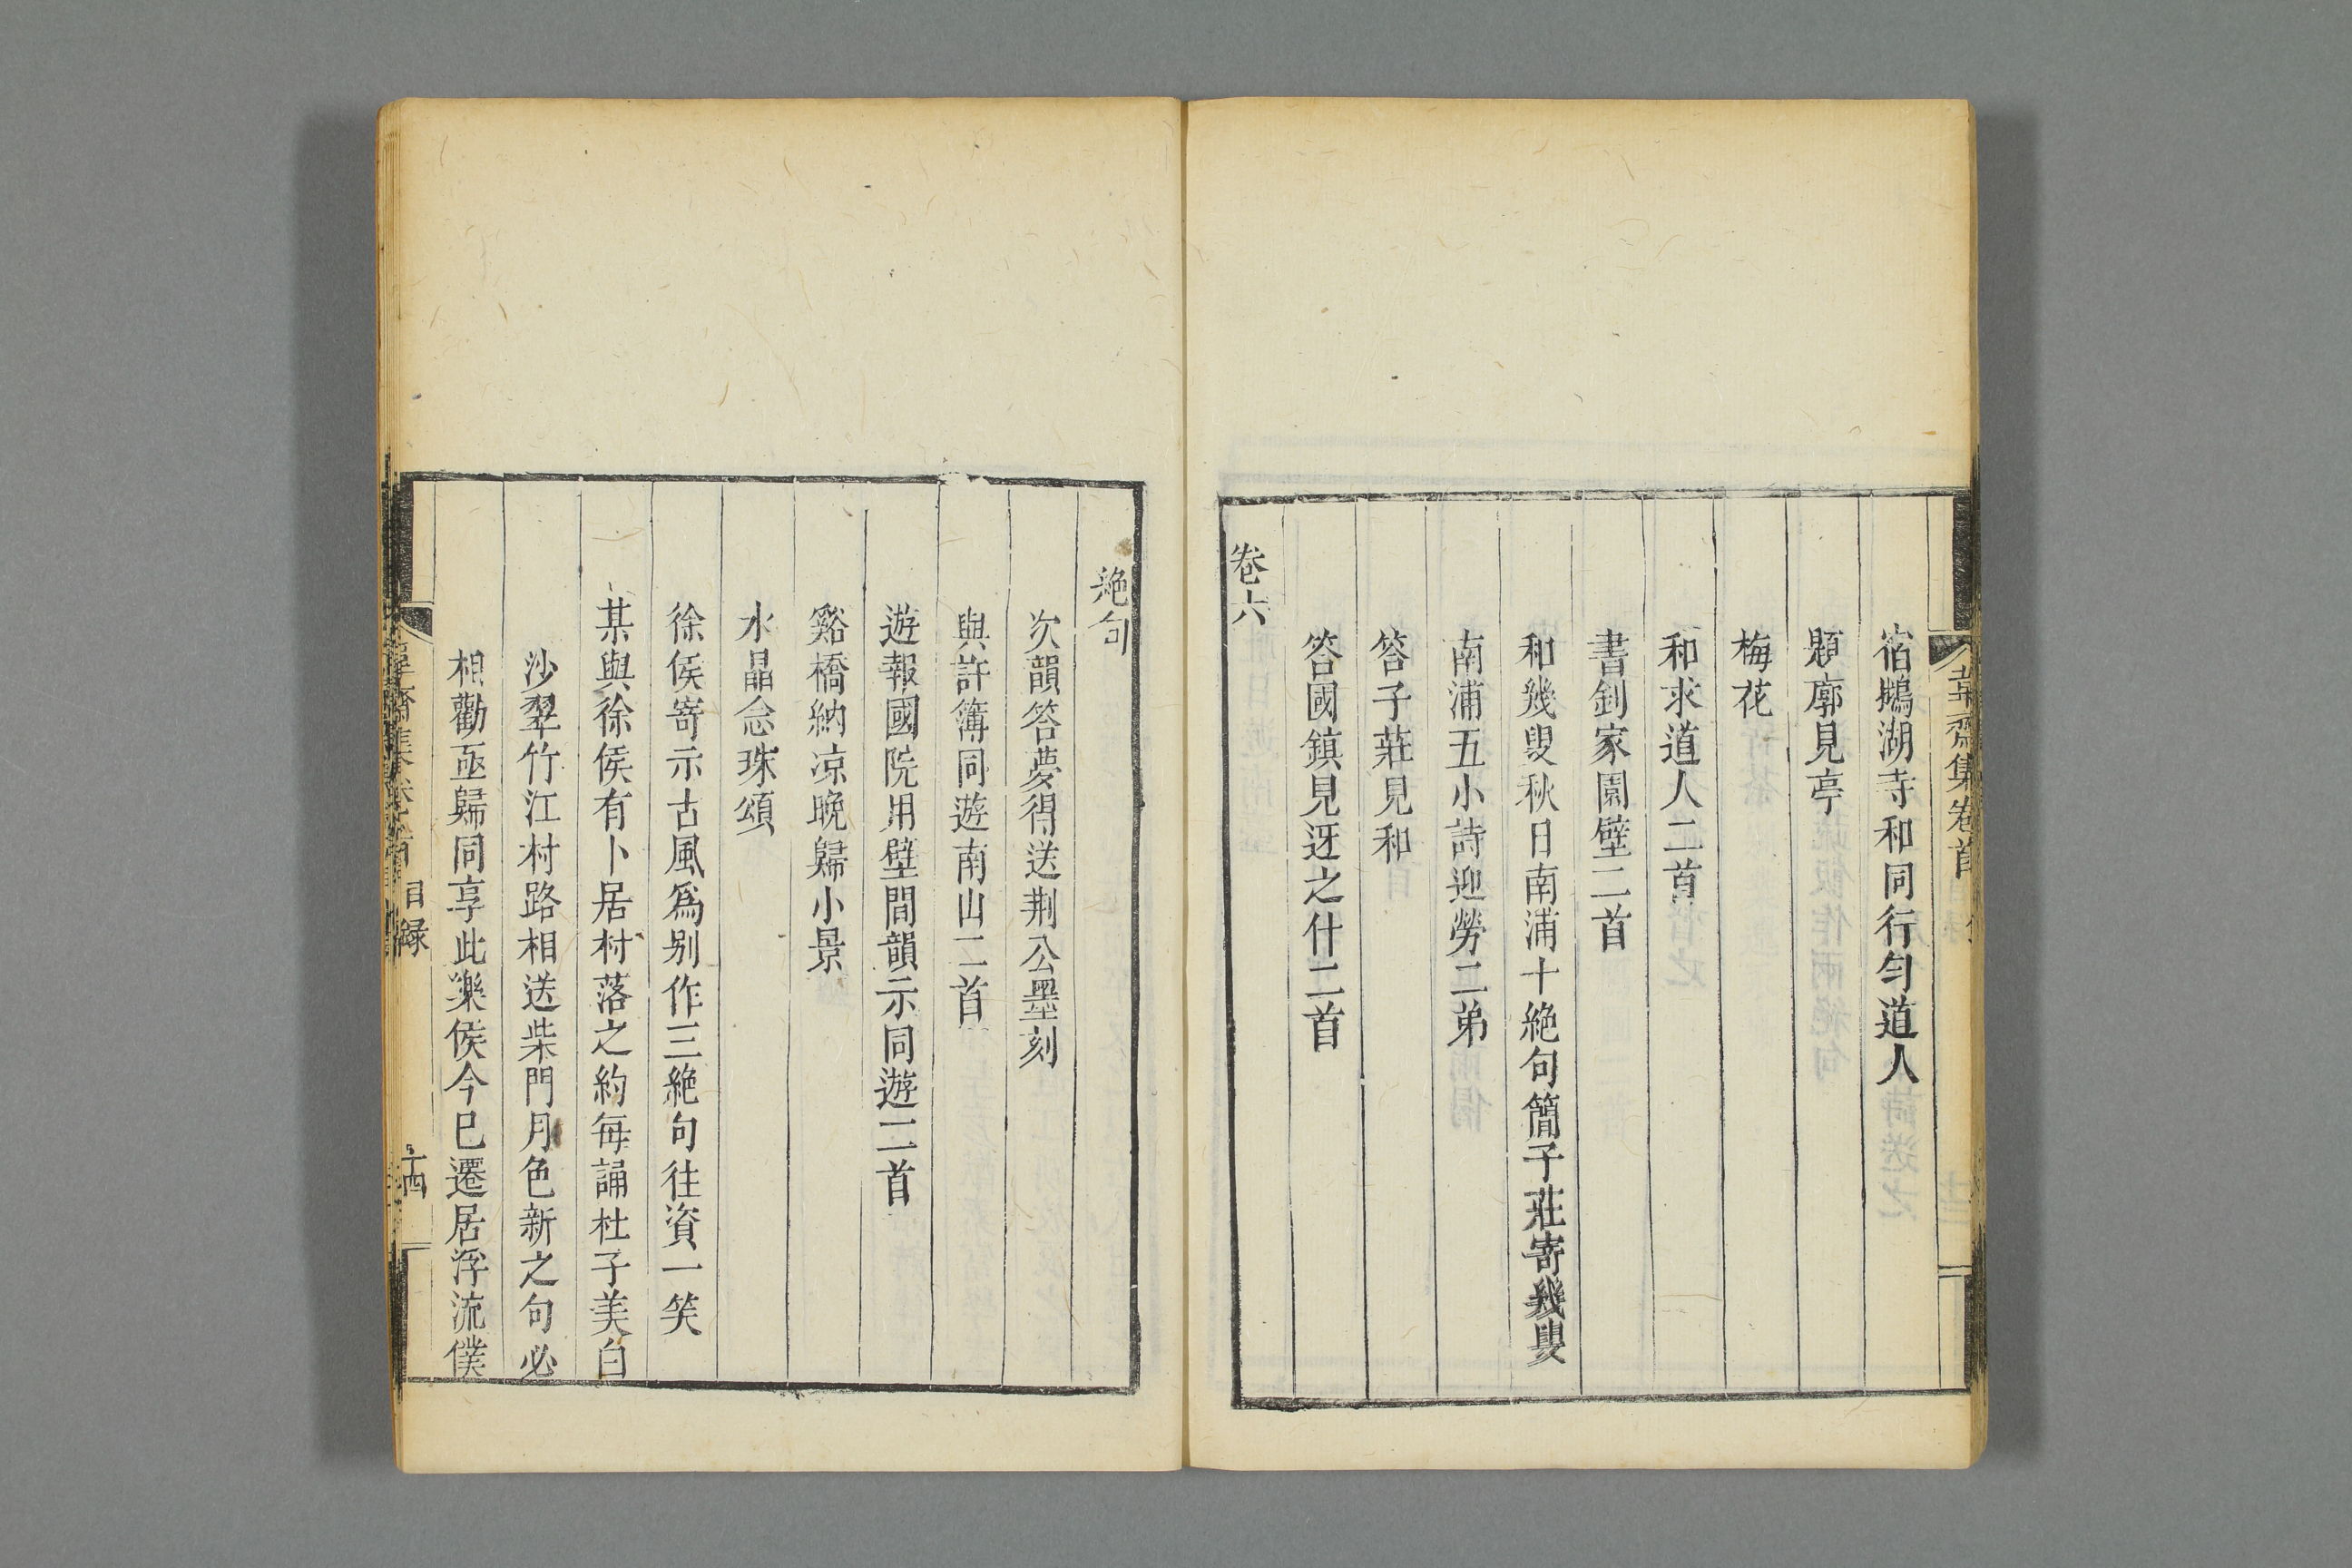 韋齋集卷首
宿鵝湖寺和同行勻道人
題廓見亭
梅花
和求道人二首
書釗家園壁二首
和幾叟秋日南浦十絶句簡子莊寄幾叟
南浦五小詩迎勞二弟
答子莊見和
答國鎮見迓之什二首
卷六
絶句
次韻答夢得送荆公墨刻
與許簿同遊南山二首
遊報國院用壁間韻示同遊二首
谿橋納凉晚歸小景
水晶念珠頌
徐侯寄示古風爲别作三絶句往資一笑
某與徐侯有卜居村落之約每誦杜子美白
沙翠竹江村路相送柴門月色新之句必
相勸亟歸同享此樂侯今巳遷居浮流僕
目録
十四